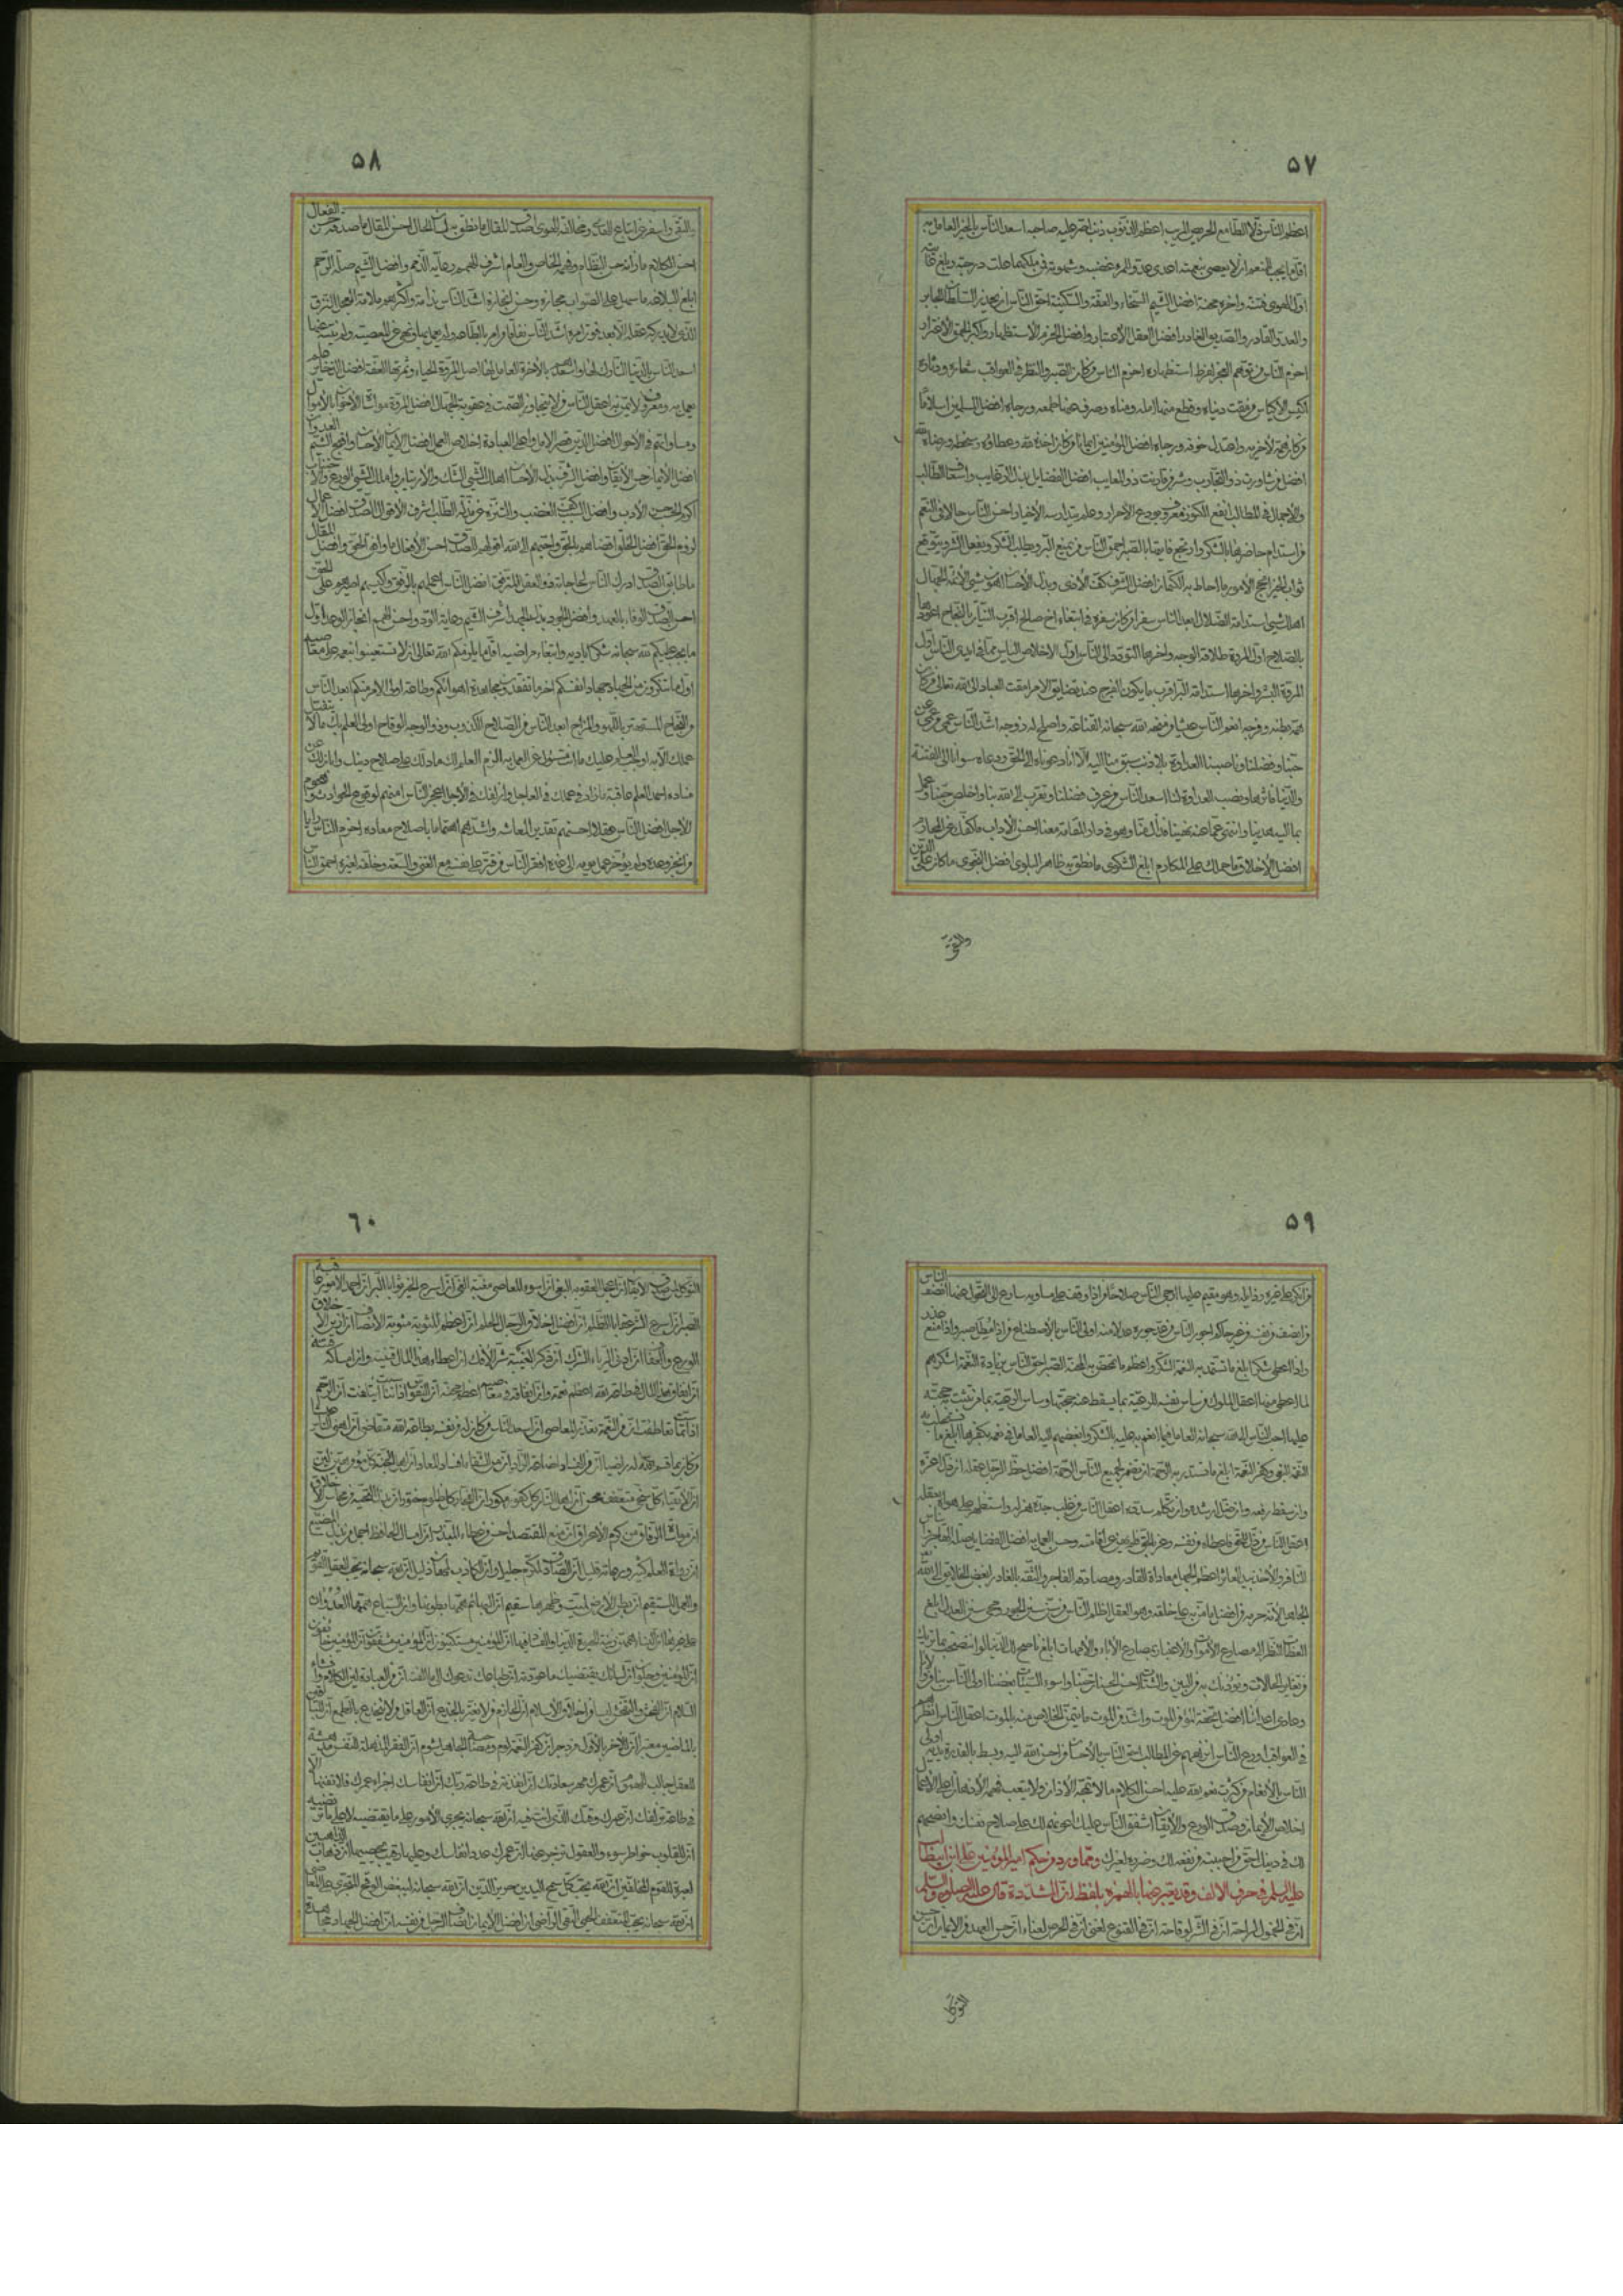 ۵۷
اعظم الناس ذلا الطامع الحريص المريب اعظم الذنوب ذنب اصر عليه صاحبه اسعد الناس بالخير العامل به
اقل ما يجب للمنعم ان لا يعصى بنعمته اعدى عدو للمرء غضبه وشهوته فمن ملكهما علت درجته وبلغ غايته
اول الهوى فتنة واخره محنة افضل الشيم السخاء والعفة والسكينة احق الناس ان يحذر السلطان الجابر
والعدو القادر والصديق الغادر افضل العقل الاعتبار وافضل الحزم الاستظهار واكبر الحمق الاغترار
احزم الناس من توهم العجز لفرط استظهاره احزم الناس من كان الصبر والنظر فى العواقب شعاره ودثاره
اكيس الاكياس من مقت دنياه وقطع منها امله ومناه وصرف عنها طمعه ورجاه افضل المسلمين اسلاما
من كان همه لاخريه واعتدل خوفه ورجاه افضل المؤمنين ايمانا من كان لله اخذه وعطاؤه وسخطه ورضاه
افضل من شاورت ذو التجارب وشر من قارنت ذو المعايب افضل الفضايل بذل الرغايب واسعاف الطالب
والاجمال فى المطالب انفع الكنوز معروف يودع الاحرار وعلم يتدارسه الاخيار احسن الناس حالا فى النعم
من استدام حاضرها بالشكر وارتجع فايتها بالصبر احمق الناس من يمنع البر ويطلب الشكر ويفعل الشر ويتوقع
ثواب الخير انجح الامور ما احاط به الكتمان افضل الشرف كف الاذى وبذل الاحسان اهون شىء لائمة الجهال
اهلك شىء استدامة الضلال ابعد الناس سفرا من كان سفره فى ابتغاء اخ صالح اقرب النيات بالنجاح اعودها
بالصلاح اول المروة طلاقة الوجه واخرها التودد الى الناس اول الاخلاص الياس مما فى ايدى الناس اول
المروة البشر واخرها استدامة البر اقرب ما يكون الفرج عند تضايق الامر امقت العباد الى الله تعالى من كان
همه بطنه وفرجه انعم الناس عيشا من منحه الله سبحانه القناعة واصلح له زوجه اشد الناس عمى من عمى عن
حبنا وفضلنا وناصبنا العداوة بلا ذنب سبق منا اليه الا انا دعوناه الى الحق ودعاه سوانا الى الفتنة
والدنيا فاثرها ونصب العداوة لنا اسعد الناس من عرف فضلنا وتقرب الى الله بنا واخلص حبنا وعمل
بما اليه ندبنا وانتهى عما عنه نهينا فذاك منا وهو فى دار المقامة معنا احسن الاداب ما كفك عن المحارم
افضل الاخلاق ما حملك على المكارم ابلغ الشكوى ما نطق به ظاهر البلوى افضل النجوى ما كان على الدين
والتقى
۵۸
والتقى واسفر عن اتباع الهدى ومخالفة الهوى اصدق المقال ما نطق به لسان الحال احسن المقال ما صدقه حسن الفعال
احسن الكلام ما زانه حسن النظام وفهمه الخاص والعام اشرف الهمم رعاية الذمم وافضل الشيم صلة الرحم
ابلغ البلاغة ما سهل على الصواب مجازه وحسن ايجازه اشد الناس ندامة واكثرهم ملامة العجل النزق
الذى لا يدركه عقله الا بعد فوت امره اشد الناس نفاقا من امر بالطاعة ولم يعمل بها ونهى عن المعصية ولم ينته عنها
اسعد الناس بالدنيا التارك لها واسعدهم بالاخرة العامل لها اصل المروة الحياء وثمرتها العفة افضل الذخاير علم
يعمل به ومعروف لا يمن به اعقل الناس من لا يتجاوز الصمت فى عقوبة الجهال افضل المروة مواساة الاخوان بالاموال
ومساواتهم فى الاحوال افضل الدين قصر الامل واعلى العبادة اخلاص العمل افضل الايمان الاحسان واقبح الشيم العدوان
افضل الايمان حسن الايقان وافضل الشرف بذل الاحسان اهلك الشىء الشك والارتياب واملك الشىء الورع والاجتناب
اكرم الحسب حسن الادب وافضل السبب كف الغضب والتنزه عن مذلة الطلب اشرف الاقوال الصدق افضل الاعمال
لزوم الحق افضل الخلق اقضاهم بالحق واحبهم الى الله اقولهم للصدق احسن الافعال ما وافق الحق وافضل المقال
ما طابق الصدق ادرك الناس لحاجاته ذو العقل المترفق افضل الناس اعملهم بالرفق واكيسهم اصبرهم على الحق
احسن الصدق الوفاء بالعهد وافضل الجود بذل الجهد اشرف الشيم رعاية الود واحسن الهمم انجاز الوعد اول
ما يجب عليكم لله سبحانه شكر اياديه وابتغاء مراضيه اقل ما يلزمكم الله تعالى ان لا تستعينوا بنعمه على معاصيه
اول ما تنكرون من الجهاد جهاد انفسكم اخر ما تفقدون مجاهدة اهوائكم وطاعة اولى الامر منكم ابعد الناس
من النجاح المستهتر باللهو والمزاح ابعد الناس من الصلاح الكذوب وذو الوجه الوقاح اولى العلم بك ما لا يتقبل
عملك الا به اوجب العلم عليك ما انت مسئول عن العمل به الزم العلم لك ما دلك على صلاح دينك وابان لك عن
فساده احمد العلم عاقبة ما زاد فى عملك فى العاجل وازلفك فى الاجل اعجز الناس امنهم لوقوع الحوادث وهجوم
الاجل افضل الناس عقلا احسنهم تقديرا لمعاشه واشدهم اهتماما باصلاح معاده احزم الناس رايا
من انجز وعده ولم يؤخر عمل يومه الى غده افقر الناس من قتر على نفسه مع الغنى والسعة وخلفه لغيره احمق الناس
۵۹
من انكر على غيره رذيلة وهو مقيم عليها ارجى الناس صلاحا من اذا وقف على مساويه سارع الى التحول عنها انصف الناس
من انصف من نفسه من غير حاكم عليه اجور الناس من عد جوره عدلا منه اولى الناس بالاصطناع من اذا مطل صبر واذا منع عذر
واذا اعطى شكر ابلغ ما تستمد به النعمة الشكر واعظم ما تمحص به المحنة الصبر احق الناس بزيادة النعمة اشكرهم
لما اعطى منها اعقل الملوك من ساس نفسه للرعية بما يسقط عنه حجتها وساس الرعية بما تثبت به حجته
عليها احب الناس الى الله سبحانه العامل فيما انعم به عليه بالشكر وابغضهم اليه العامل فى نعمه بكفرها ابلغ ما تستجلب به
النقمة البغى وكفر النعمة ابلغ ما تستدر به الرحمة ان تضمر لجميع الناس الرحمة افضل حظ الرجل عقله ان ذل اعزه
وان سقط رفعه وان ضل ارشده وان تكلم سدده اعقل الناس من غلب جده هزله واستظهر على هواه بعقله
اعقل الناس من ذل للحق فاعطاه من نفسه وعز بالحق فلم يهن عن اقامته وحسن العمل به افضل الفضايل صلة الهاجر وايناس
النافر والاخذ بيد العاثر اعظم الجهل معاداة القادر ومصادقة الفاجر والثقة بالغادر ابغض الخلايق الى الله تعالى
الجاهل لانه حرمه من افضل ما من به على خلقه وهو العقل اظلم الناس من سن سنن الجور ومحى سنن العدل ابلغ
العظات النظر الى مصارع الاموات والاعتبار بمصارع الاباء والامهات ابلغ ناصح لك الدنيا لو انتصحت بما تريك
من تغاير الحالات وتؤذنك به من البين والشتات احسن الحسنات حبنا واسوء السيئات بغضنا اولى الناس بنا من والانا
وعادى اعداءنا افضل تحفة المؤمن الموت واشد من الموت ما يتمنى الخلاص منه بالموت اعقل الناس انظرهم
فى العواقب اورع الناس انزههم عن المطالب احق الناس بالاحسان من احسن الله اليه وبسط بالقدرة يديه اولى
الناس بالانعام من كثرت نعم الله عليه احسن الكلام ما لا تمجه الاذان ولا يتعب فهمه الاذهان اعلى الاعمال
اخلاص الايمان وصدق الورع والايقان اشفق الناس عليك اعونهم لك على صلاح نفسك وانصحهم
لك فى دينك احق من احببت من نفعه لك وضره لغيرك ومما ورد من حكم امير المؤمنين على بن ابيطالب
عليه السلام فى حرف الالف وقد يعبر عنها بالهمزة بلفظ ان المشددة قال عليه الصلوة والسلام
ان فى الخمول لراحة ان فى الشر لوقاحة ان فى القنوع لغنى ان فى الحرص لعناء ان حسن العهد من الايمان ان حسن
التوكل
۶۰
التوكل لمن صدق الايقان ان اعجل العقوبة عقوبة البغى ان اسوء المعاصى مغبة الغى ان اسرع الخير ثوابا البر ان احمد الامور عاقبة
الصبر ان اسرع الشر عقابا الظلم ان افضل اخلاق الرجال الحلم ان اعظم المثوبة مثوبة الانصاف ان ازين الاخلاق
الورع والعفاف ان ادنى الرياء الشرك ان ذكر الغيبة شر الافك ان اعطاء هذا المال قنية وان امساكه فتنة
ان انفاق هذا المال فى طاعة الله اعظم نعمة وان انفاقه فى معاصيه اعظم محنة ان النفوس اذا تناسبت ائتلفت ان الرحم
اذا تماست تعاطفت ان من النعمة تعذر المعاصى ان اسعد الناس من كان له من نفسه بطاعة الله متقاضى ان اهنى الناس عيشا
من كان بما قسم الله له راضيا ان من الفساد اضاعة الزاد ان من الشقاء افساد المعاد ان اهل الجنة كل مؤمن هين لين
ان الاتقياء كل سخى متعفف محسن ان اهل النار كل كفور مكور ان الفجار كل ظلوم ختور ان بذل التحية من محاسن الاخلاق
ان مواساة الرفاق من كرم الاعراق ان منع المقتصد احسن من عطاء المبذر ان امساك الحافظ اجمل من بذل المضيع
ان رواة العلم كثير ورعاته قليل ان الصادق لمكرم جليل وان الكاذب لمهان ذليل ان الله سبحانه يحب العقل القويم
والعمل المستقيم ان بطن الارض لميت وظهرها سقيم ان البهائم همها بطونها وان السباع همها العدوان
على غيرها ان النساء همهن زينة الحيوة الدنيا والفساد فيها ان المؤمنين مستكينون ان المؤمنين مشفقون ان المؤمنين خائفون
ان المؤمنين وجلون ان لسانك يقتضيك ما عودته ان طباعك تدعوك الى ما الفته ان من العبادة لين الكلام وافشاء
السلام ان الفحش والتفحش ليسا من اخلاق الاسلام ان الحازم من لا يغتر بالخدع ان العاقل من لا ينخدع بالطمع ان للباقين
بالماضين معتبرا ان للاخر بالاول مزدجرا ان كفر النعم لؤم ومصاحبة الجاهل شوم ان الفقر مذلة للنفس مدهشة
للعقل جالب للهموم ان عمرك مهر سعادتك ان انفذته فى طاعة ربك ان انفاسك اجزاء عمرك فلا تفنها الا
فى طاعة تزلفك ان عمرك وقتك الذى انت فيه ان الله سبحانه يجرى الامور على ما يقتضيه لا على ما ترتضيه
ان للقلوب خواطر سوء والعقول تزجر عنها ان عمرك عدد انفاسك وعليها رقيب يحصيها ان ذهاب الذاهبين
لعبرة للقوم المتخلفين ان الله يحب كل سمح اليدين حريز الدين ان الله سبحانه ليبغض الوقح المتجرى على المعاصى
ان الله سبحانه يحب المتعفف الحيى التقى الراضى ان افضل الايمان انصاف الرجل من نفسه ان افضل الجهاد مجاهدة